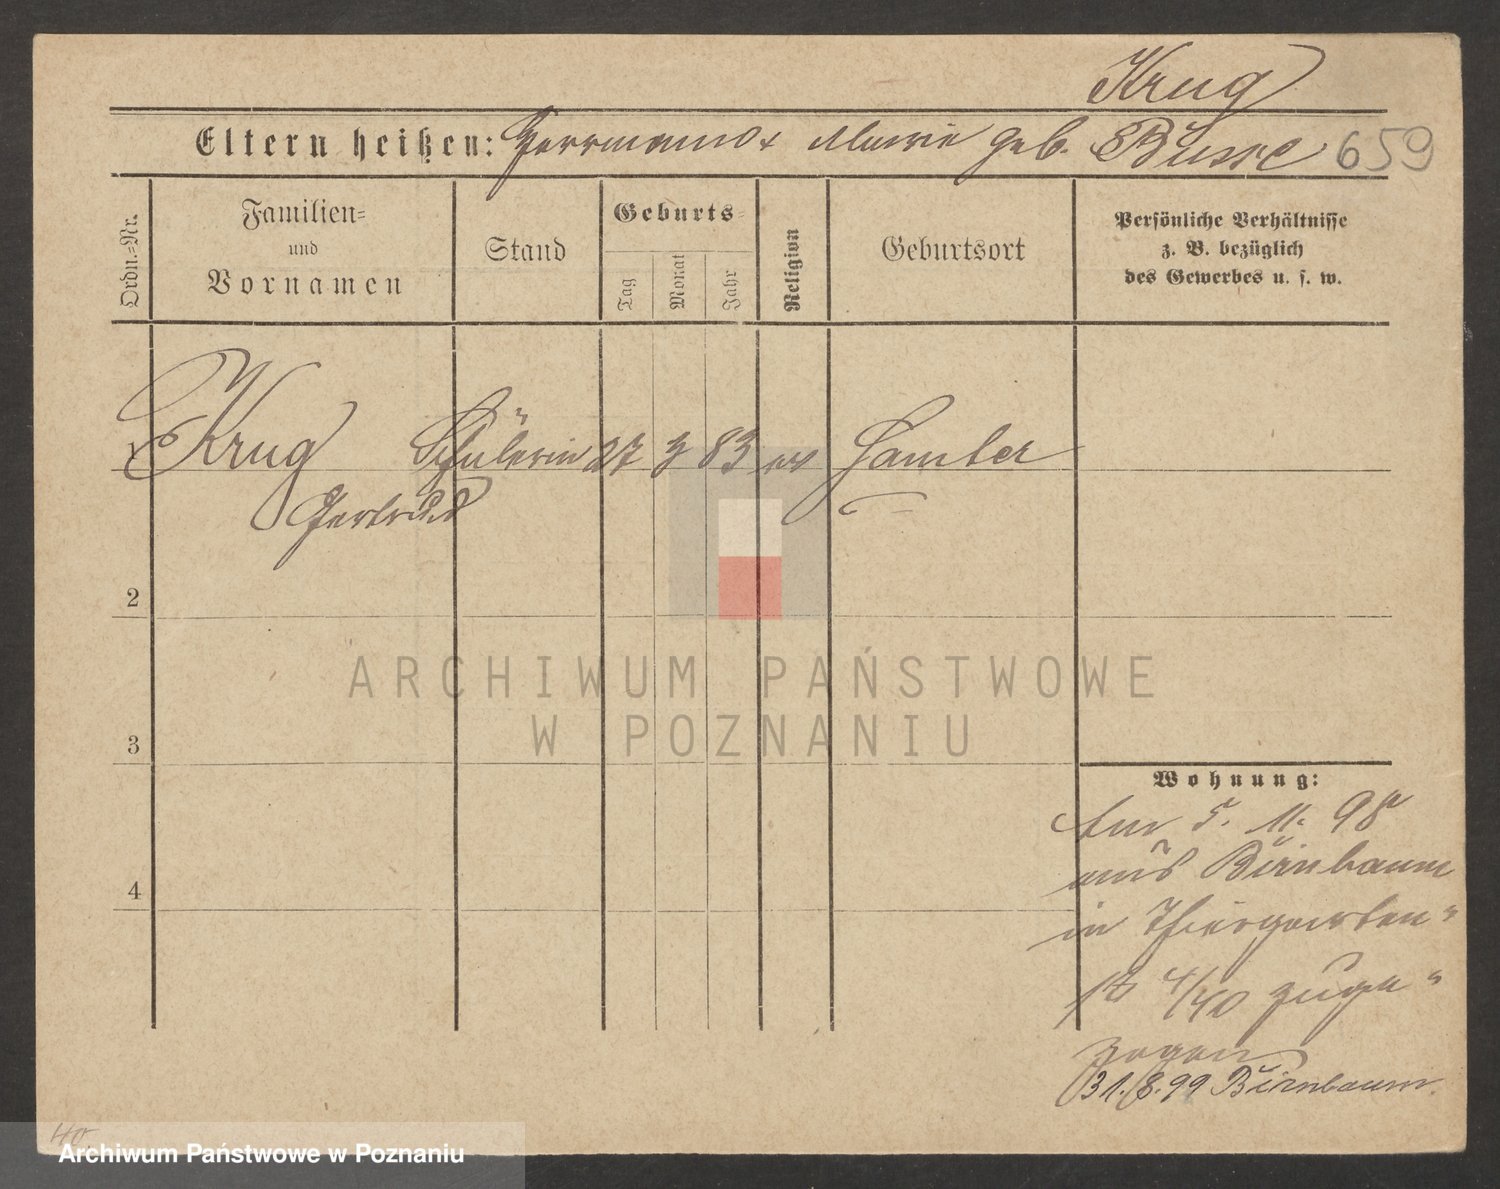 Krug
Eltern heißen: Herrmann & Marie geb. Busse 659
Ordn.=Nr.
Familien=
und
Vornamen
Stand
Geburts=
Tag
Monat
Jahr
Religion
Geburtsort
Persönliche Verhältnisse
z. B. bezüglich
des Gewerbes u. s. w.
1 Krug Schülerin 27 3 83 ev Samter
Gertrud
2
3
4
ARCHIWUM PAŃSTWOWE
W POZNANIU
Wohnung:
Am 5. 11. 98
aus Birnbaum
in Thiergarten=
st 4/40 zuge=
zogen
31. 8. 99 Birnbaum.
40.
Archiwum Państwowe w Poznaniu